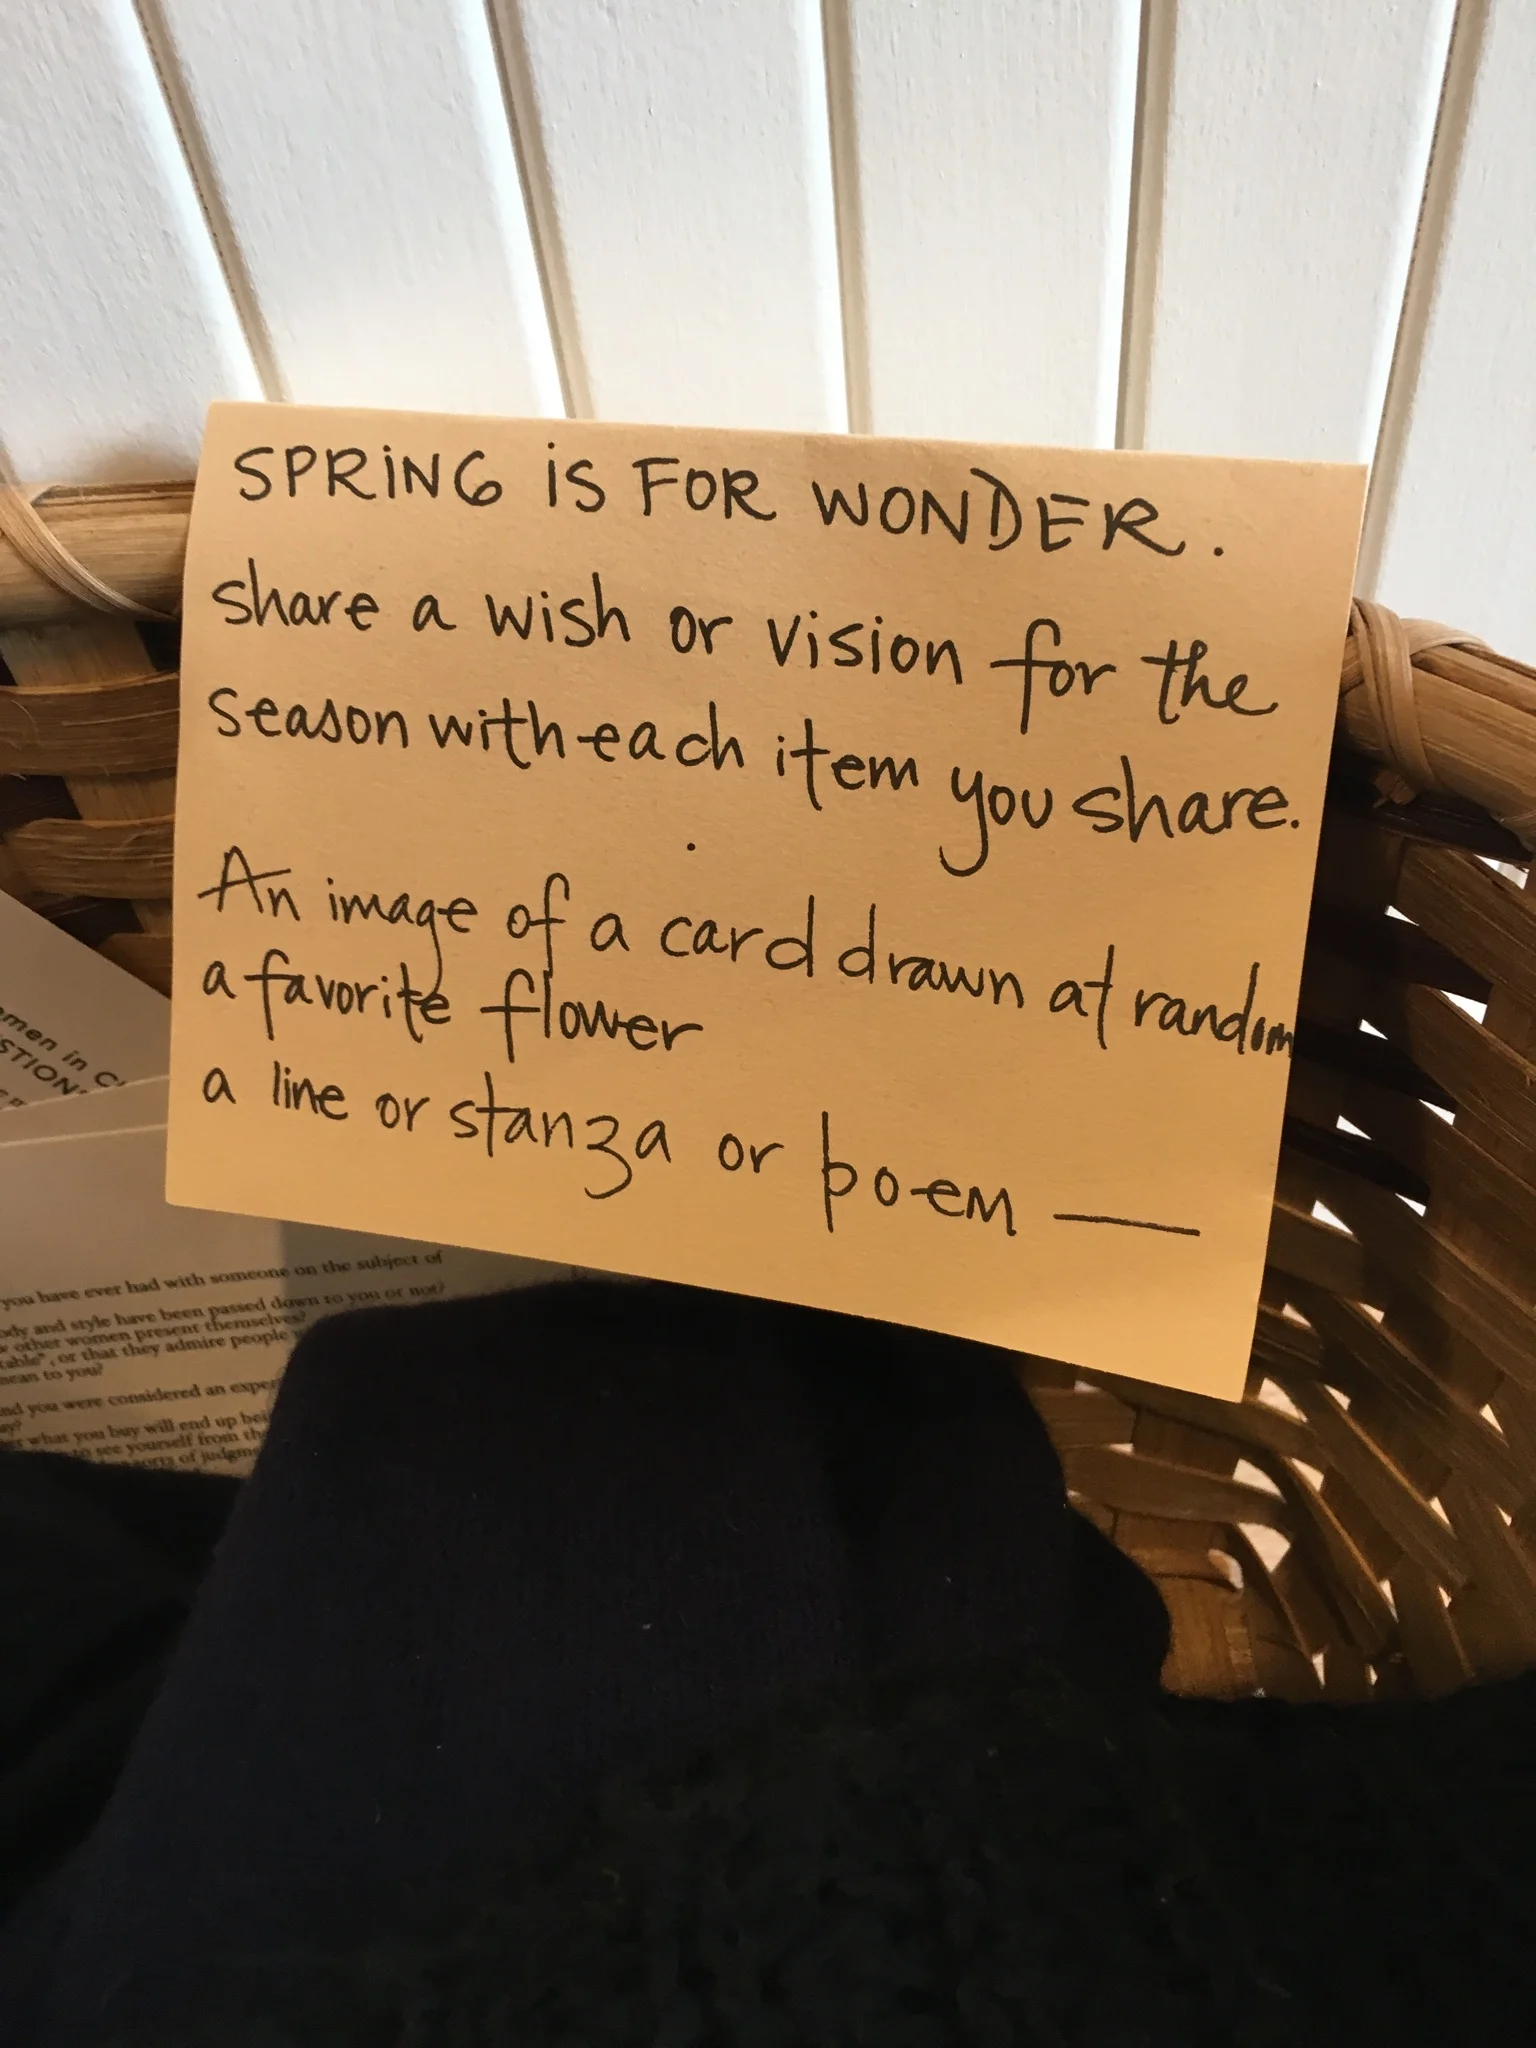 SPRING IS FOR WONDER.
share a wish or vision for the
season with each item you share.
An image of a card drawn at random
a favorite flower
a line or stanza or poem —
men in
STION
you have ever had with someone on the subject of
ody and style have been passed down to you or not?
other women present themselves?
table", or that they admire people
mean to you?
nd you were considered an exper
ay?
what you buy will end up bei
to see yourself from th
sorts of judgm